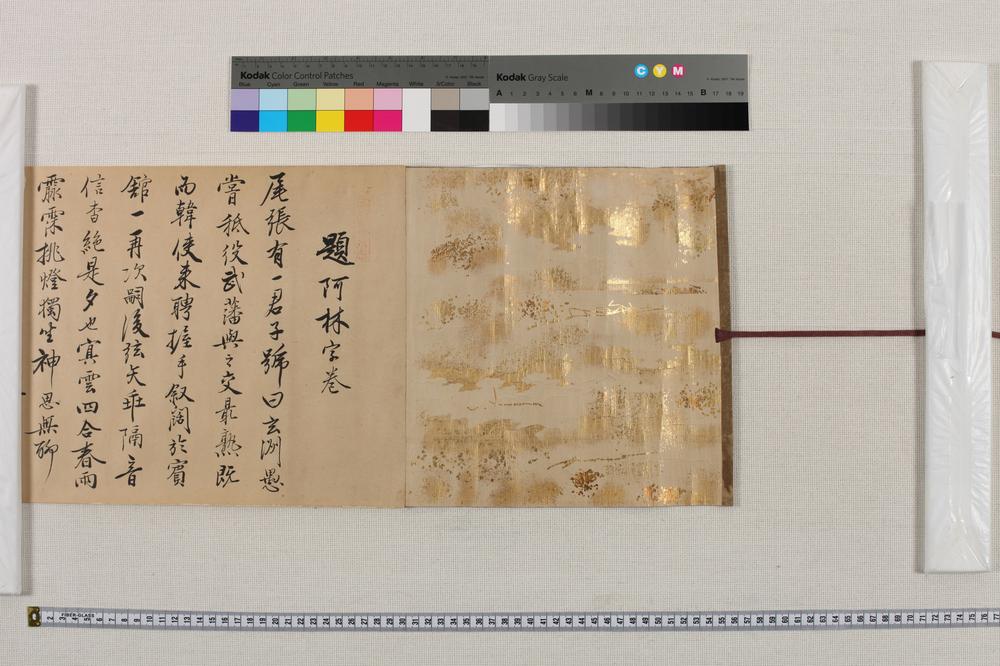 Kodak Color Control Patches
Blue Cyan Green Yellow Red Magenta White 3/Color Black
Kodak Gray Scale
C Y M
A 1 2 3 4 5 6 M 8 9 10 11 12 13 14 15 B 17 18 19
題阿林字卷
尾張有一君子號曰玄洲愚
嘗祗役武藩與之交最熟既
而韓使來聘握手叙闊於賓
舘一再次嗣後弦矢乖隔音
信杳絶是夕也寘雲四合春雨
霢霂挑燈獨坐神思無聊
FIBER-GLASS